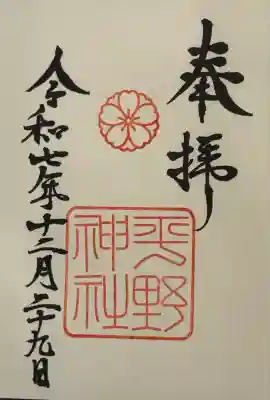 奉拝
平野
神社
令和七年十二月二十九日